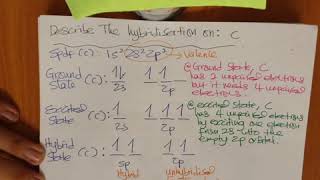 Describe The hybridisation on: C
spdf (C): 1s² 2s² 2p² → Valence
Ground State (C): 1⥮ 1 1
2s 2p
@ Ground State, C
has 2 unpaired electrons
but it needs 4 unpaired
electrons.
Excited State (C): 1 1 1 1
2s 2p
@ excited state, C
has 4 unpaired electrons
by exciting one electron
from 2s into the
empty 2p orbital.
Hybrid State (C): 1 1 1 1
sp 2p
Hybrid unhybridised